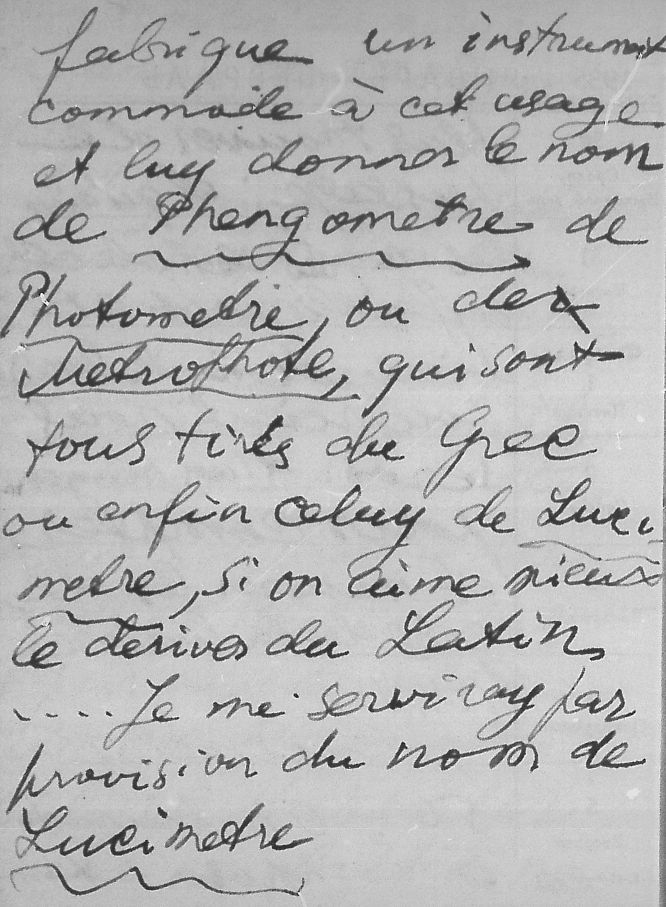 fabrique un instrument
commode à cet usage
et luy donner le nom
de Phengometre de
Photometre, ou de
Metrophote, qui sont
tous tirés du Grec
ou enfin celuy de Luci
metre, si on aime mieux
le deriver du Latin
.... Je me serviray par
provision du nom de
Lucimetre